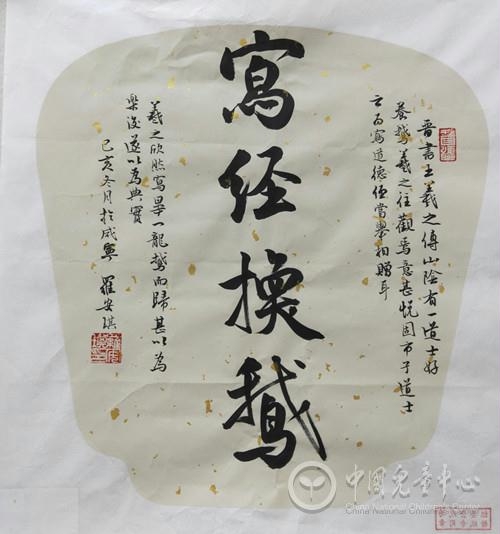 晋書王羲之傳山陰有一道士好
養鵝羲之往觀焉意甚悦固市于道士
云为寫道德经當舉相贈耳
寫经換鵝
羲之欣然寫畢一龍鵝而歸甚以為
樂後遂以為典實
己亥冬月於咸寧 羅安琪
中國兒童中心
China National Children's Center